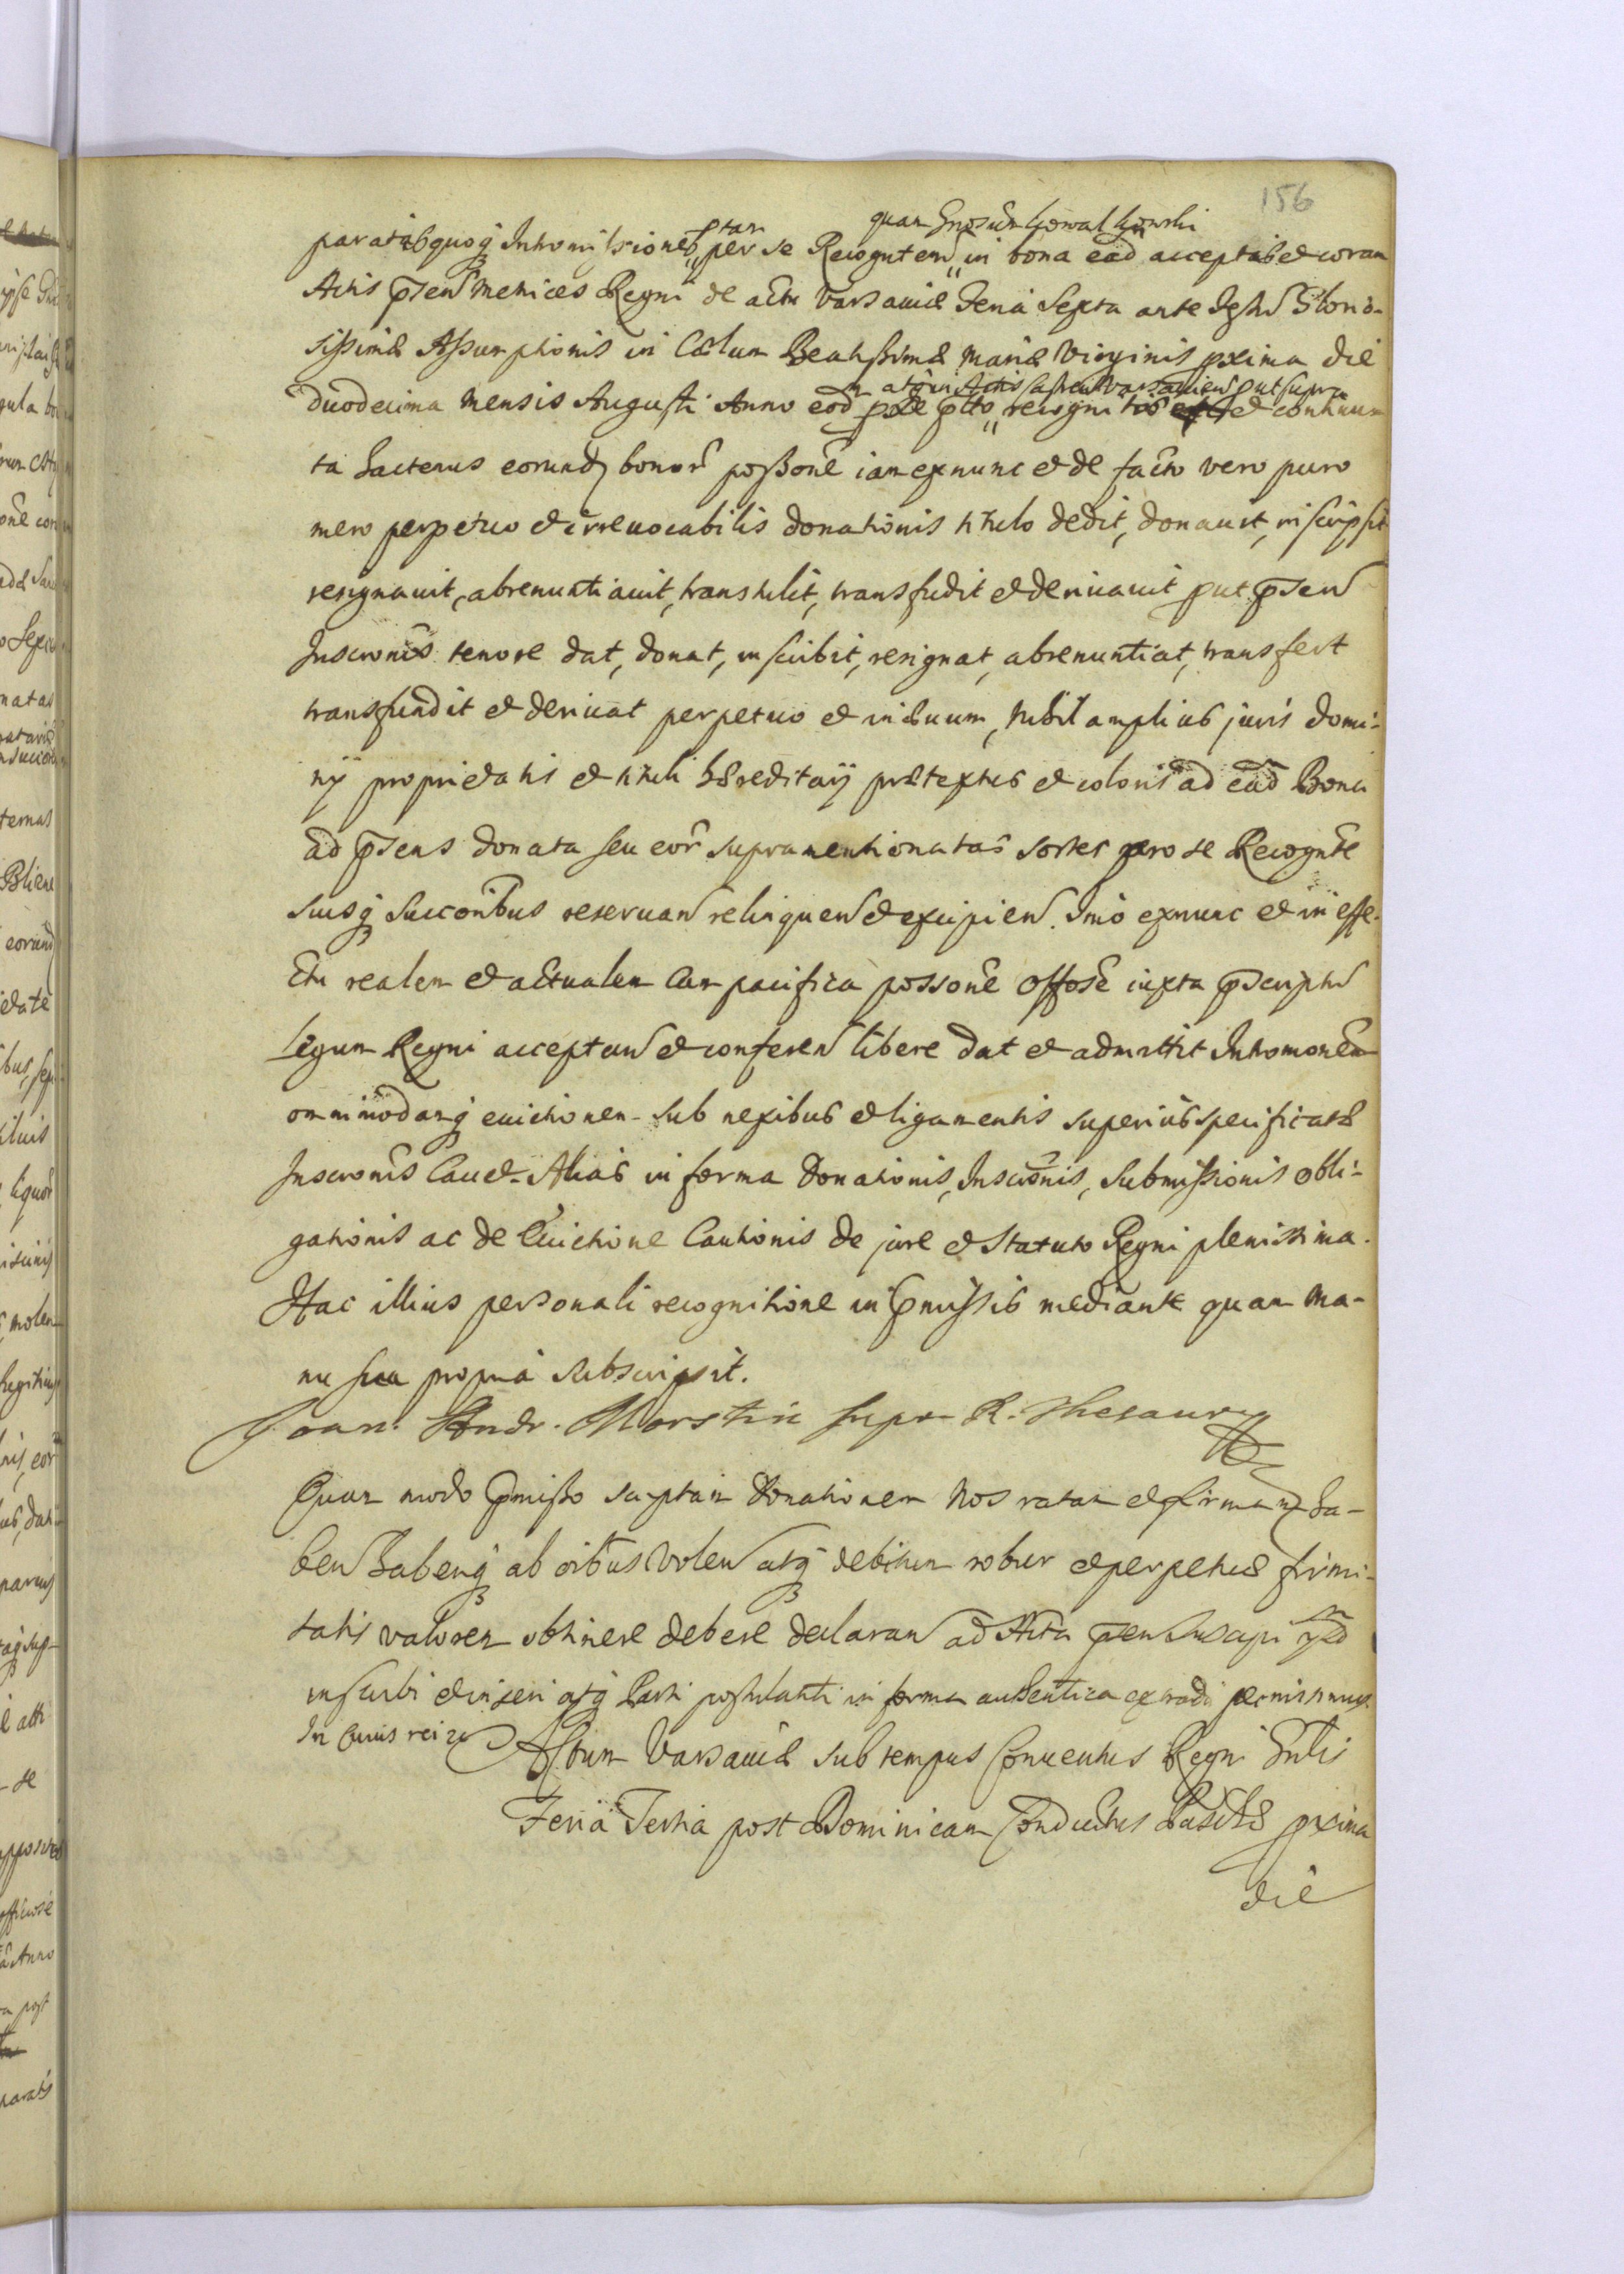 156
quam Gnosum Kowalkowski
paratasq̨ Intromissiones ptam per se Recogntem in bona ead acceptas et coram
Actis pñsen Metrices Regni de actu Varsaviæ Feria Sexta ante Festu Glorio-
sissimæ Assumptionis in Cælum Beatissimæ Mariæ Virginis pxima die
atq̨ in Actis Castren Varsavien put supra
duodecima Mensis Augusti Anno eod recognitas et continua
ta hactenus eorund bonor possone iam exnunc et de facto vero puro
mero perpetuo et irrevocabilis donationis titulo dedit, donavit, inscripsit
resignavit, abrenuntiavit, transtulit, transfudit et derivavit put pñsen
Inscronis tenore dat, donat, inscribit, resignat, abrenuntiat, transfert
transfundit et derivat perpetuo et in ævum, nihil amplius juris domi-
nÿ proprietatis et tituli hæreditarÿ prætextus et coloris ad ead Bona
ad pñsens donata seu eor supramentionatas sortes pro se Recognte
suisq̨ succoribus reservan relinquen et excipien. Imo exnunc et in effe-
ctu realem et actualem cum pacifica possone Offose iuxta pscriptu
Legum Regni acceptan et conferen libere dat et admittit Intromonem
omnimodamq̨ evictionem sub nexibus et ligamentis superius specificatæ
Inscronis Cavet. Alias in forma Donationis, Inscronis, Submissionis obli-
gationis ac de Evictione Cautionis de jure et Statuto Regni plenissima.
Hac illius personali recognitione in pmissis mediante quam ma-
nu sua propria subscripsit.
Joan. Andr. Morstin supr R. Thesaur
Quam modo pmisso scriptam donationem Nos ratam et firmam ha-
ben haberiq̨ ab oibus volen atq̨ debitum robur et perpetuæ firmi-
tatis valorem obtinere debere declaran ad Acta pñsen suscipi
inscribi et inseri atq̨ Parti postulanti in forma authentica extradi permisimus.
In cuius rei
Actum Varsaviæ sub tempus Conventus Regni Gnlis
Feria Tertia post Dominicam Conductus Paschæ pxima
die